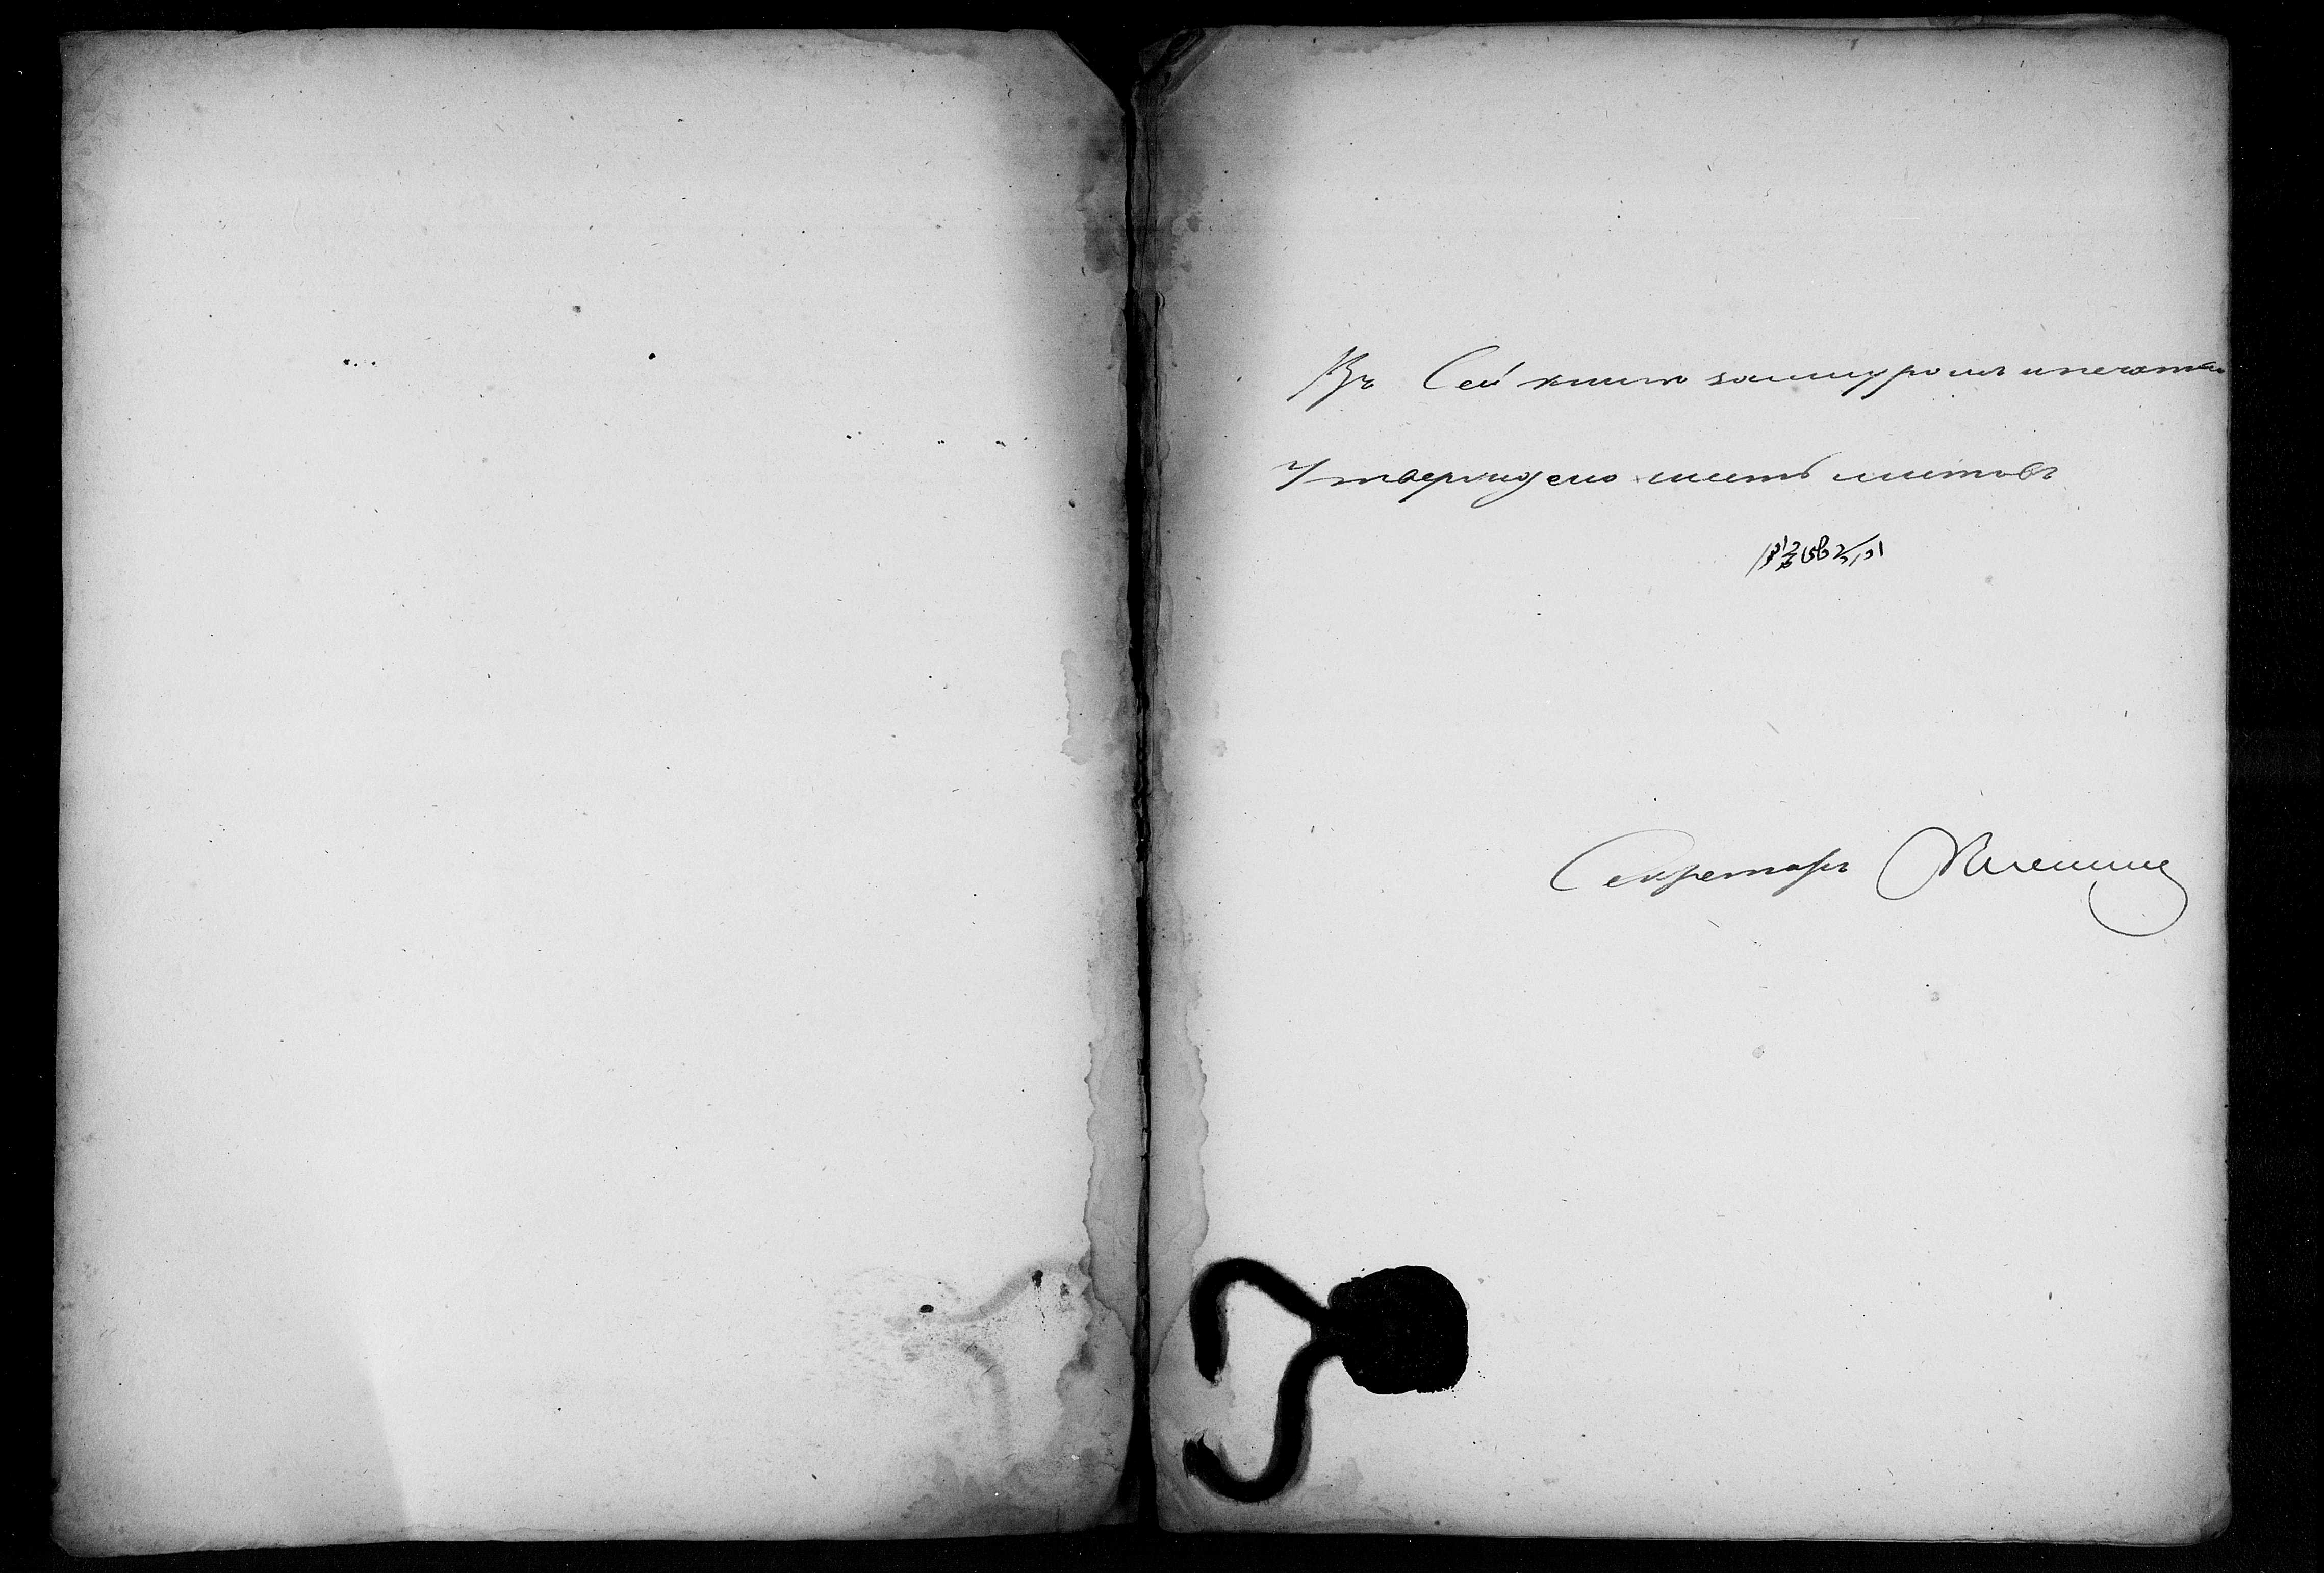 Въ Сей книге зашнуровано и печатью
Утверждено шесть листовъ
Секретарь